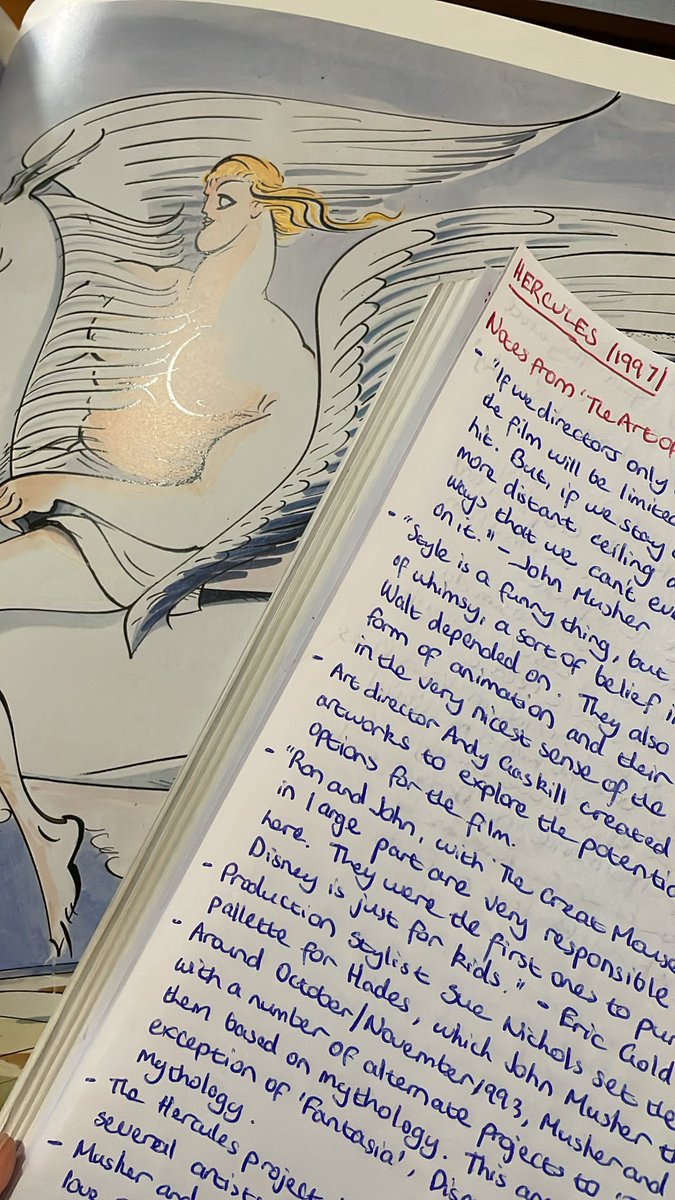 HERCULES (1997)
Notes from 'The Art of
- "If we directors only
the film will be limited
hit. But, if we stay
more distant ceiling
ways that we can't
on it." - John Musher
- "Style is a funny thing, but
of whimsy, a sort of belief
Walt depended on. They also
form of animation and their
in the very nicest sense of the
- Art director Andy Gaskill created
artworks to explore the potential
options for the film.
- "Ron and John, with 'The Great Mouse
in large part are very responsible
here. They were the first ones to
Disney is just for kids." - Eric Gold
- Production stylist Sue Nichols set the
pallette for Hades, which John Musher
- Around October/November 1993, Musher and
with a number of alternate projects to
them based on mythology. This
exception of 'Fantasia',
mythology.
- The Hercules project
several
- Musher and
love